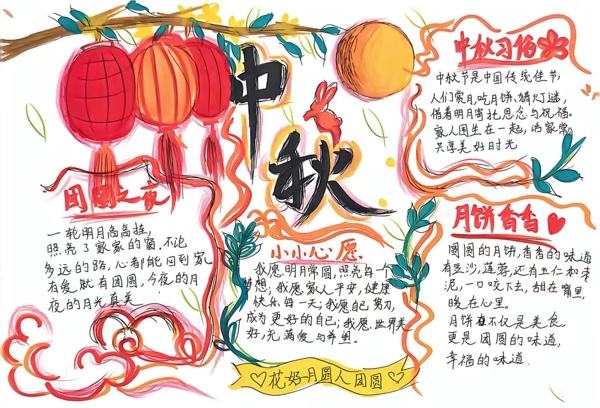 中秋
中秋习俗
中秋节是中国传统佳节,
人们赏月,吃月饼、猜灯谜,
借着明月寄托思念与祝福。
家人围坐在一起,话家常
共享美好时光
团圆之夜
一轮明月高高挂,
照亮了家家的窗,不论
多远的路,心都能回到家
有爱就有团圆,今夜的月
夜的月光真美
小小心愿
我愿明月常圆,照亮每一个
梦想;我愿家人平安,健康
快乐每一天;我愿自己努力,
成为更好的自己;我愿世界美
好,充满爱与希望。
月饼香香
圆圆的月饼,香香的味道
有豆沙,莲蓉,还有五仁和枣
泥,一口咬下去,甜在嘴里,
暖在心里。
月饼不仅是美食,
更是团圆的味道,
幸福的味道
花好月圆人团圆